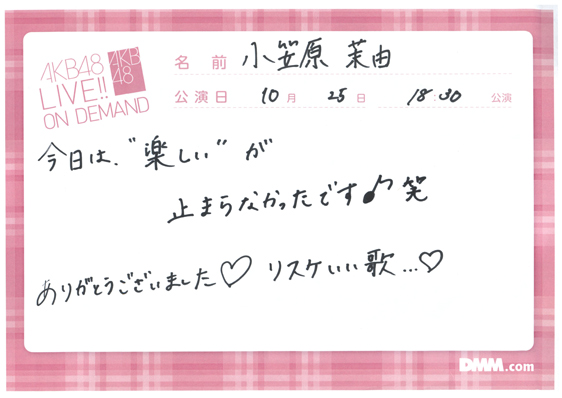 AKB48
LIVE!!
ON DEMAND
AKB
48
名前 小笠原 茉由
公演日 10月 25日 18:30 公演
今日は、"楽しい"が
止まらなかったです♪笑
ありがとうございました♡ リスケいい歌…♡
DMM.com